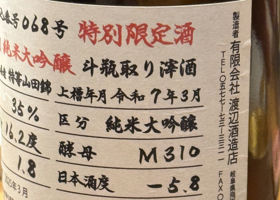 068号 特別限定酒
純米大吟醸 斗瓶取り滓酒
特等山田錦 上槽年月 令和7年3月
35% 区分 純米大吟醸
16.2度 酵母 M310
1.8 日本酒度 -5.8
製造者 有限会社 渡辺酒造店